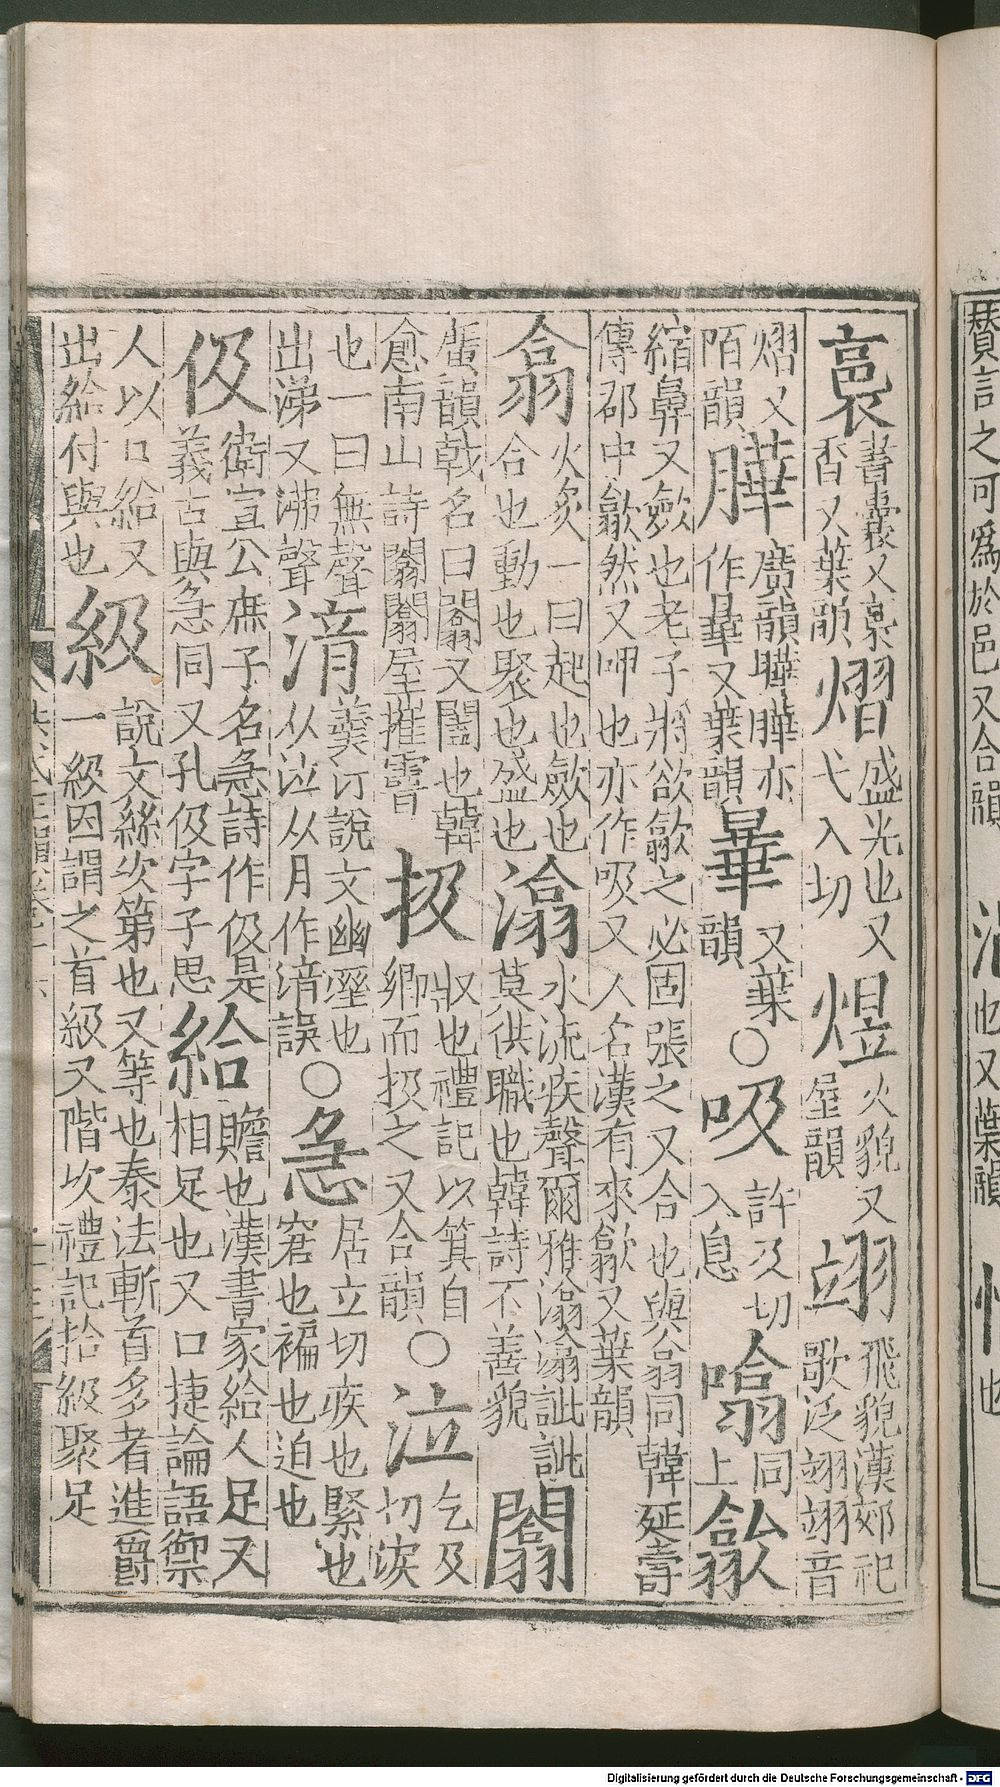 賛言之可爲於邑又合韻 也又葉韻 也
裛書囊又裛香又葉韻熠盛光也又弋入切煜火貌又屋韻翊飛貌漢郊祀歌泛翊翊音
熠又陌韻曄廣韻曄曄亦作曅又葉韻曅又葉韻○吸許及切入息噏同上歙
縮鼻又斂也老子將欲歙之必固張之又合也與翕同韓延壽傳郡中歙然又呷也亦作吸又人名漢有來歙又葉韻
翕火炙一曰起也歛也合也動也聚也盛也潝水流疾聲爾雅潝潝訿訿莫供職也韓詩不善貌闟
廣韻戟名曰闟又闔也韓愈南山詩闟闟屋摧霤扱収也禮記以箕自鄉而扱之又合韻○泣乞及切淚
也一曰無聲出涕又沸聲湆羹汁說文幽溼也从泣从月作湆誤○急居立切疾也緊也窘也褊也迫也
伋衛宣公庶子名急詩作伋是義古與急同又孔伋字子思給贍也漢書家給人足又相足也又口捷論語禦
人以口給又出給付與也級說文絲次第也又等也秦法斬首多者進爵一級因謂之首級又階次禮記拾級聚足
Digitalisierung gefördert durch die Deutsche Forschungsgemeinschaft - DFG